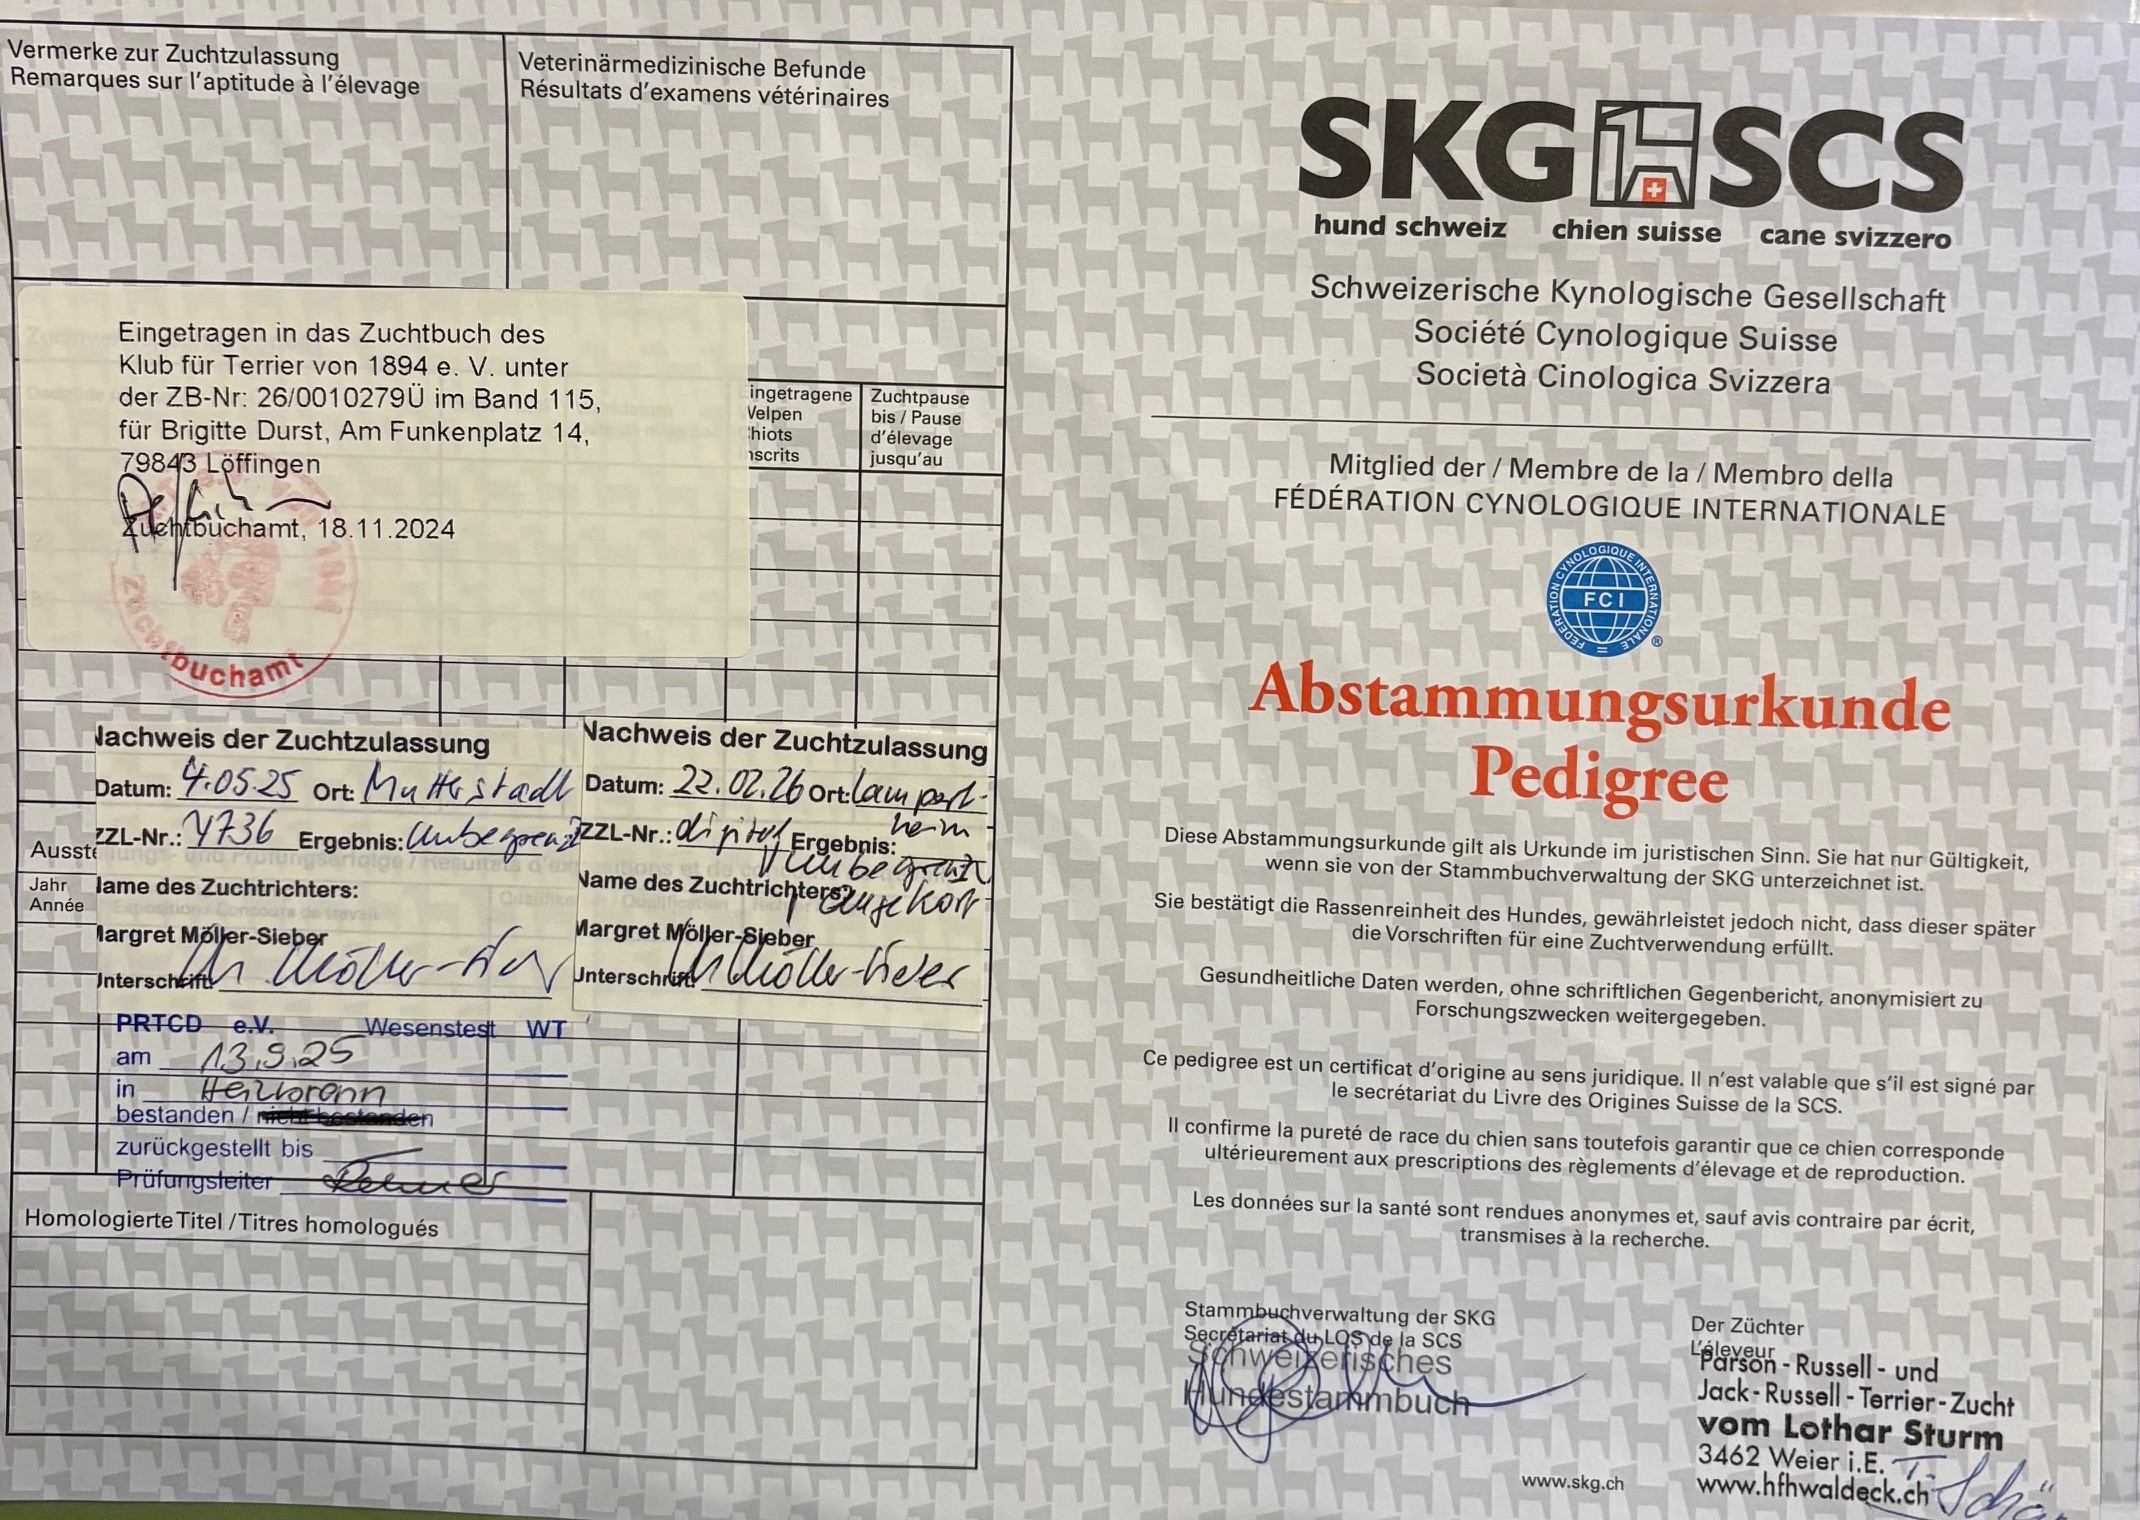 Vermerke zur Zuchtzulassung
Remarques sur l'aptitude à l'élevage
Veterinärmedizinische Befunde
Résultats d'examens vétérinaires
Eingetragen in das Zuchtbuch des
Klub für Terrier von 1894 e. V. unter
der ZB-Nr: 26/0010279Ü im Band 115,
für Brigitte Durst, Am Funkenplatz 14,
79843 Löffingen
Zuchtbuchamt, 18.11.2024
Zuchtbuchamt
ingetragene
Welpen
hiots
nscrits
Zuchtpause
bis / Pause
d'élevage
jusqu'au
Nachweis der Zuchtzulassung
Datum: 4.05.25 Ort: Mutterstadt
ZZL-Nr.: Y736 Ergebnis: Unbegrenzt
Name des Zuchtrichters:
Margret Möller-Sieber
Unterschrift: M Möller-Sieber
Nachweis der Zuchtzulassung
Datum: 22.02.26 Ort: Lampert-
heim
ZZL-Nr.: digital Ergebnis:
Unbegrenzt
Name des Zuchtrichters:
angekört
Margret Möller-Sieber
Unterschrift: M Möller-Sieber
Ausst
Jahr
Année
PRTCD e.V. Wesenstest WT
am 13.9.25
in Heilbronn
bestanden / nicht bestanden
zurückgestellt bis
Prüfungsleiter
Homologierte Titel / Titres homologués
SKG SCS
hund schweiz chien suisse cane svizzero
Schweizerische Kynologische Gesellschaft
Société Cynologique Suisse
Società Cinologica Svizzera
Mitglied der / Membre de la / Membro della
FÉDÉRATION CYNOLOGIQUE INTERNATIONALE
FEDERATION CYNOLOGIQUE INTERNATIONALE
FCI
®
Abstammungsurkunde
Pedigree
Diese Abstammungsurkunde gilt als Urkunde im juristischen Sinn. Sie hat nur Gültigkeit,
wenn sie von der Stammbuchverwaltung der SKG unterzeichnet ist.
Sie bestätigt die Rassenreinheit des Hundes, gewährleistet jedoch nicht, dass dieser später
die Vorschriften für eine Zuchtverwendung erfüllt.
Gesundheitliche Daten werden, ohne schriftlichen Gegenbericht, anonymisiert zu
Forschungszwecken weitergegeben.
Ce pedigree est un certificat d'origine au sens juridique. Il n'est valable que s'il est signé par
le secrétariat du Livre des Origines Suisse de la SCS.
Il confirme la pureté de race du chien sans toutefois garantir que ce chien corresponde
ultérieurement aux prescriptions des règlements d'élevage et de reproduction.
Les données sur la santé sont rendues anonymes et, sauf avis contraire par écrit,
transmises à la recherche.
Stammbuchverwaltung der SKG
Secrétariat du LOS de la SCS
Schweizerisches
Hundestammbuch
www.skg.ch
Der Züchter
L'éleveur
Parson - Russell - und
Jack - Russell - Terrier - Zucht
vom Lothar Sturm
3462 Weier i.E.
www.hfhwaldeck.ch